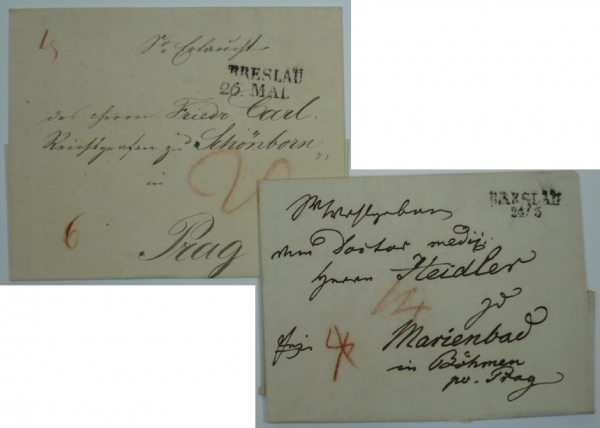 Sr. Erlaucht
BRESLAU
26. MAI.
des Herrn Friedr. Carl.
Reichsgrafen zu Schönborn
in
6
Prag
BRESLAU
24/5
Sr Wohlgeboren
dem Doctor medic:
Herrn Heidler
zu
Marienbad
in Böhmen
pr. Prag